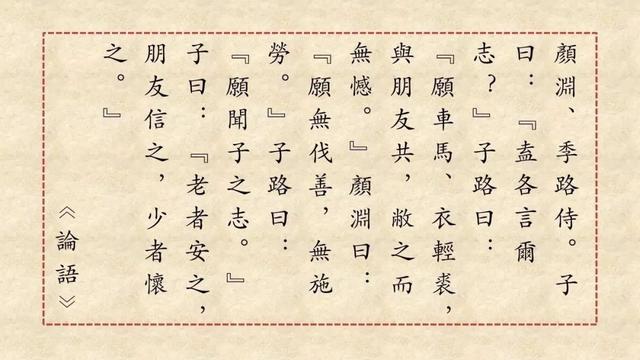 顏淵、季路侍。子
曰：『盍各言爾
志？』子路曰：
『願車馬、衣輕裘，
與朋友共，敝之而
無憾。』顏淵曰：
『願無伐善，無施
勞。』子路曰：
『願聞子之志。』
子曰：『老者安之，
朋友信之，少者懷
之。』
《論語》